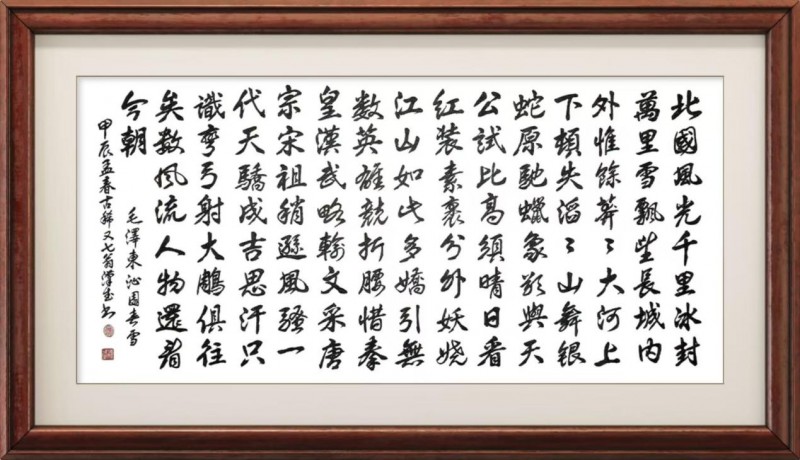 北國風光千里冰封
萬里雪飄望長城内
外惟餘莽〻大河上
下頓失滔〻山舞银
蛇原馳蠟象欲與天
公試比高須晴日看
红装素裹分外妖娆
江山如此多嬌引無
数英雄競折腰惜秦
皇漢武略輸文采唐
宗宋祖稍遜風騷一
代天驕成吉思汗只
識彎弓射大鵰俱往
矣数風流人物還看
今朝
毛澤東沁园春雪
甲辰孟春古稀又七翁书